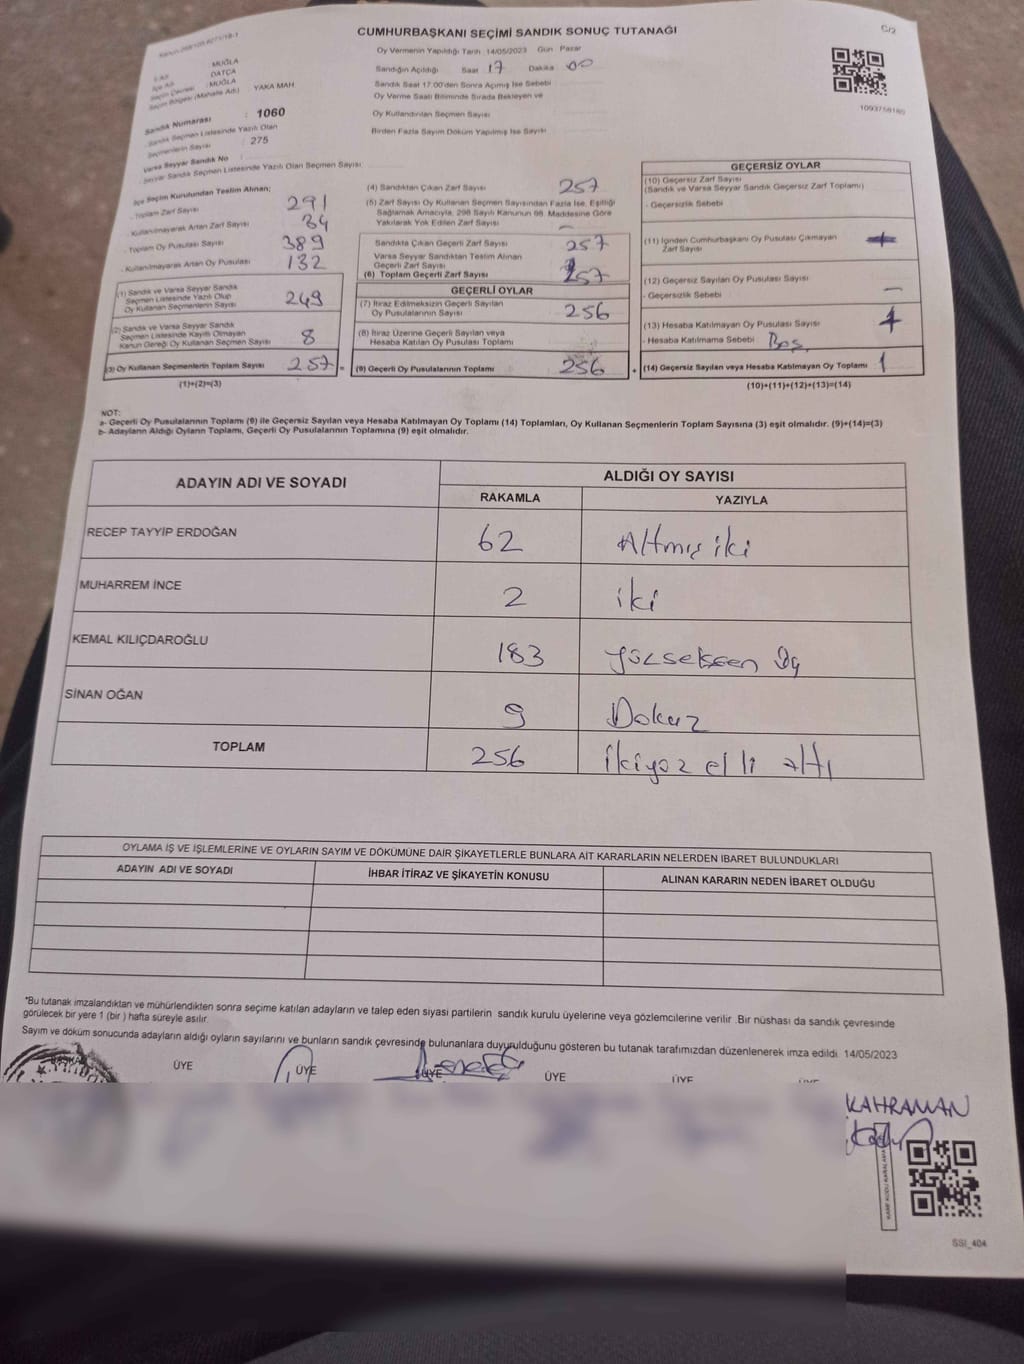 CUMHURBAŞKANI SEÇİMİ SANDIK SONUÇ TUTANAĞI
C/2
Oy Vermenin Yapıldığı Tarih 14/05/2023 Gün Pazar
Sandığın Açıldığı Saat 17 Dakika 00
Sandık Saat 17.00'den Sonra Açılmış İse Sebebi
Oy Verme Saati Bitiminde Sırada Bekleyen ve
Oy Kullandırılan Seçmen Sayısı
Birden Fazla Sayım Döküm Yapılmış İse Sayısı
MUĞLA
DATÇA
Seçim Çevresi : MUĞLA
Seçim Bölgesi (Mahalle Adı) YAKA MAH
Sandık Numarası : 1060
Sandık Seçmen Listesinde Yazılı Olan
Seçmenlerin Sayısı : 275
Varsa Seyyar Sandık No
Seyyar Sandık Seçmen Listesinde Yazılı Olan Seçmen Sayısı
İlçe Seçim Kurulundan Teslim Alınan;
- Toplam Zarf Sayısı 291
- Kullanılmayarak Artan Zarf Sayısı 34
- Toplam Oy Pusulası Sayısı 389
- Kullanılmayarak Artan Oy Pusulası 132
(1) Sandık ve Varsa Seyyar Sandık
Seçmen Listesinde Yazılı Olup
Oy Kullanan Seçmenlerin Sayısı 249
(2) Sandık ve Varsa Seyyar Sandık
Seçmen Listesinde Kayıtlı Olmayan
Kanun Gereği Oy Kullanan Seçmen Sayısı 8
(3) Oy Kullanan Seçmenlerin Toplam Sayısı 257 =
(1)+(2)=(3)
(4) Sandıktan Çıkan Zarf Sayısı 257
(5) Zarf Sayısı Oy Kullanan Seçmen Sayısından Fazla İse, Eşitliği
Sağlamak Amacıyla, 298 Sayılı Kanunun 98. Maddesine Göre
Yakılarak Yok Edilen Zarf Sayısı –
Sandıkta Çıkan Geçerli Zarf Sayısı 257
Varsa Seyyar Sandıktan Teslim Alınan
Geçerli Zarf Sayısı
(6) Toplam Geçerli Zarf Sayısı 257
GEÇERLİ OYLAR
(7) İtiraz Edilmeksizin Geçerli Sayılan
Oy Pusulalarının Sayısı 256
(8) İtiraz Üzerine Geçerli Sayılan veya
Hesaba Katılan Oy Pusulası Toplamı
(9) Geçerli Oy Pusulalarının Toplamı 256 +
1093758185
GEÇERSİZ OYLAR
(10) Geçersiz Zarf Sayısı
(Sandık ve Varsa Seyyar Sandık Geçersiz Zarf Toplamı)
- Geçersizlik Sebebi
(11) İçinden Cumhurbaşkanı Oy Pusulası Çıkmayan
Zarf Sayısı
(12) Geçersiz Sayılan Oy Pusulası Sayısı –
- Geçersizlik Sebebi
(13) Hesaba Katılmayan Oy Pusulası Sayısı 1
- Hesaba Katılmama Sebebi Boş
(14) Geçersiz Sayılan veya Hesaba Katılmayan Oy Toplamı 1
(10)+(11)+(12)+(13)=(14)
NOT:
a- Geçerli Oy Pusulalarının Toplamı (9) ile Geçersiz Sayılan veya Hesaba Katılmayan Oy Toplamı (14) Toplamları, Oy Kullanan Seçmenlerin Toplam Sayısına (3) eşit olmalıdır. (9)+(14)=(3)
b- Adayların Aldığı Oyların Toplamı, Geçerli Oy Pusulalarının Toplamına (9) eşit olmalıdır.
ADAYIN ADI VE SOYADI
ALDIĞI OY SAYISI
RAKAMLA YAZIYLA
RECEP TAYYİP ERDOĞAN 62 Altmış iki
MUHARREM İNCE 2 iki
KEMAL KILIÇDAROĞLU 183 yüzseksen üç
SİNAN OĞAN 9 Dokuz
TOPLAM 256 ikiyüz elli altı
OYLAMA İŞ VE İŞLEMLERİNE VE OYLARIN SAYIM VE DÖKÜMÜNE DAİR ŞİKAYETLERLE BUNLARA AİT KARARLARIN NELERDEN İBARET BULUNDUKLARI
ADAYIN ADI VE SOYADI İHBAR İTİRAZ VE ŞİKAYETİN KONUSU ALINAN KARARIN NEDEN İBARET OLDUĞU
*Bu tutanak imzalandıktan ve mühürlendikten sonra seçime katılan adayların ve talep eden siyasi partilerin sandık kurulu üyelerine veya gözlemcilerine verilir. Bir nüshası da sandık çevresinde
görülecek bir yere 1 (bir ) hafta süreyle asılır.
Sayım ve döküm sonucunda adayların aldığı oyların sayılarını ve bunların sandık çevresinde bulunanlara duyurulduğunu gösteren bu tutanak tarafımızdan düzenlenerek imza edildi. 14/05/2023
BAŞKAN ÜYE ÜYE ÜYE ÜYE ÜYE
KAHRAMAN
SSI_404